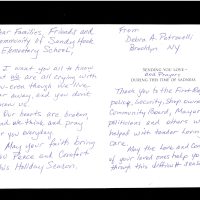 ear Families, Friends and
ommunity of Sandy Hook
Elementary School,
I want you all to know
that we are all crying with
you even though we live
far away, and you don't
know us.
Our hearts are broken,
and we think and pray
for you everyday.
May your faith bring
you Peace and Comfort
this Holiday Season.
From
Debra A. Petronelli
Brooklyn NY
SENDING YOU LOVE
and Prayers
DURING THIS TIME OF SADNESS
Thank you to the First Resp
police, Security, Shop owne
Community Board, Mayor
politicians and others w
helped with tender lovin
care.
May the Love and Com
of your loved ones help yo
through this difficult